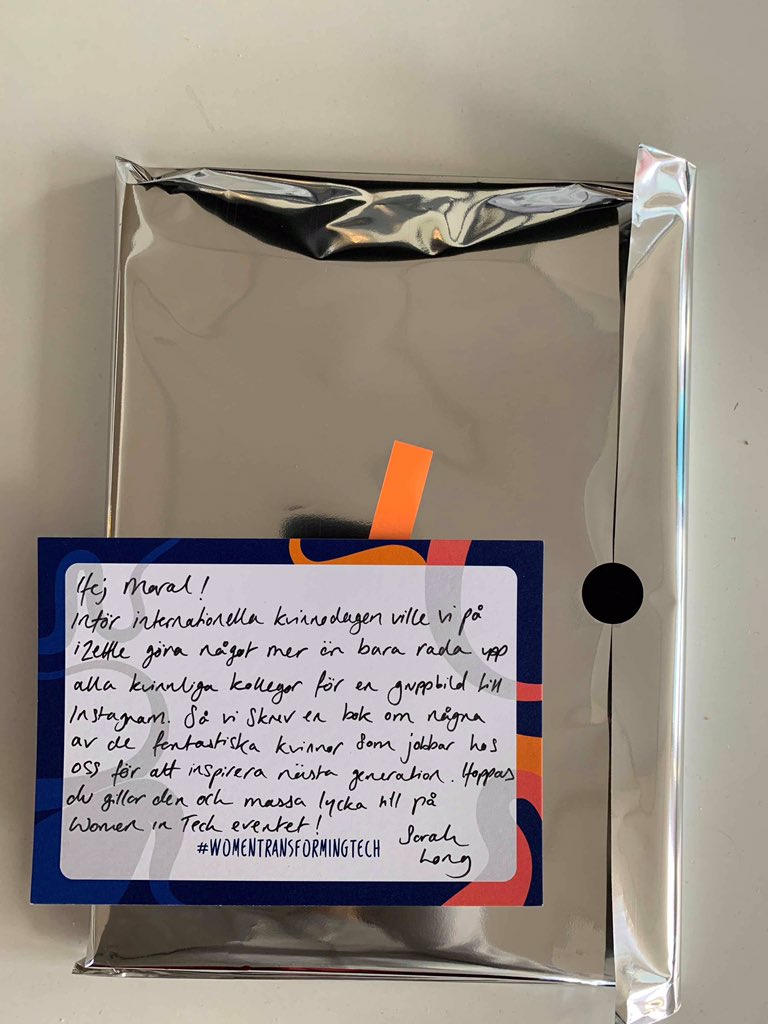 Hej Maral!
Inför internationella kvinnodagen ville vi på
iZettle göra något mer än bara rada upp
alla kvinnliga kollegor för en gruppbild till
Instagram. Så vi skrev en bok om några
av de fantastiska kvinnor som jobbar hos
oss för att inspirera nästa generation. Hoppas
du gillar den och massa lycka till på
Women in Tech eventet!
#WOMENTRANSFORMINGTECH
Sarah
Long